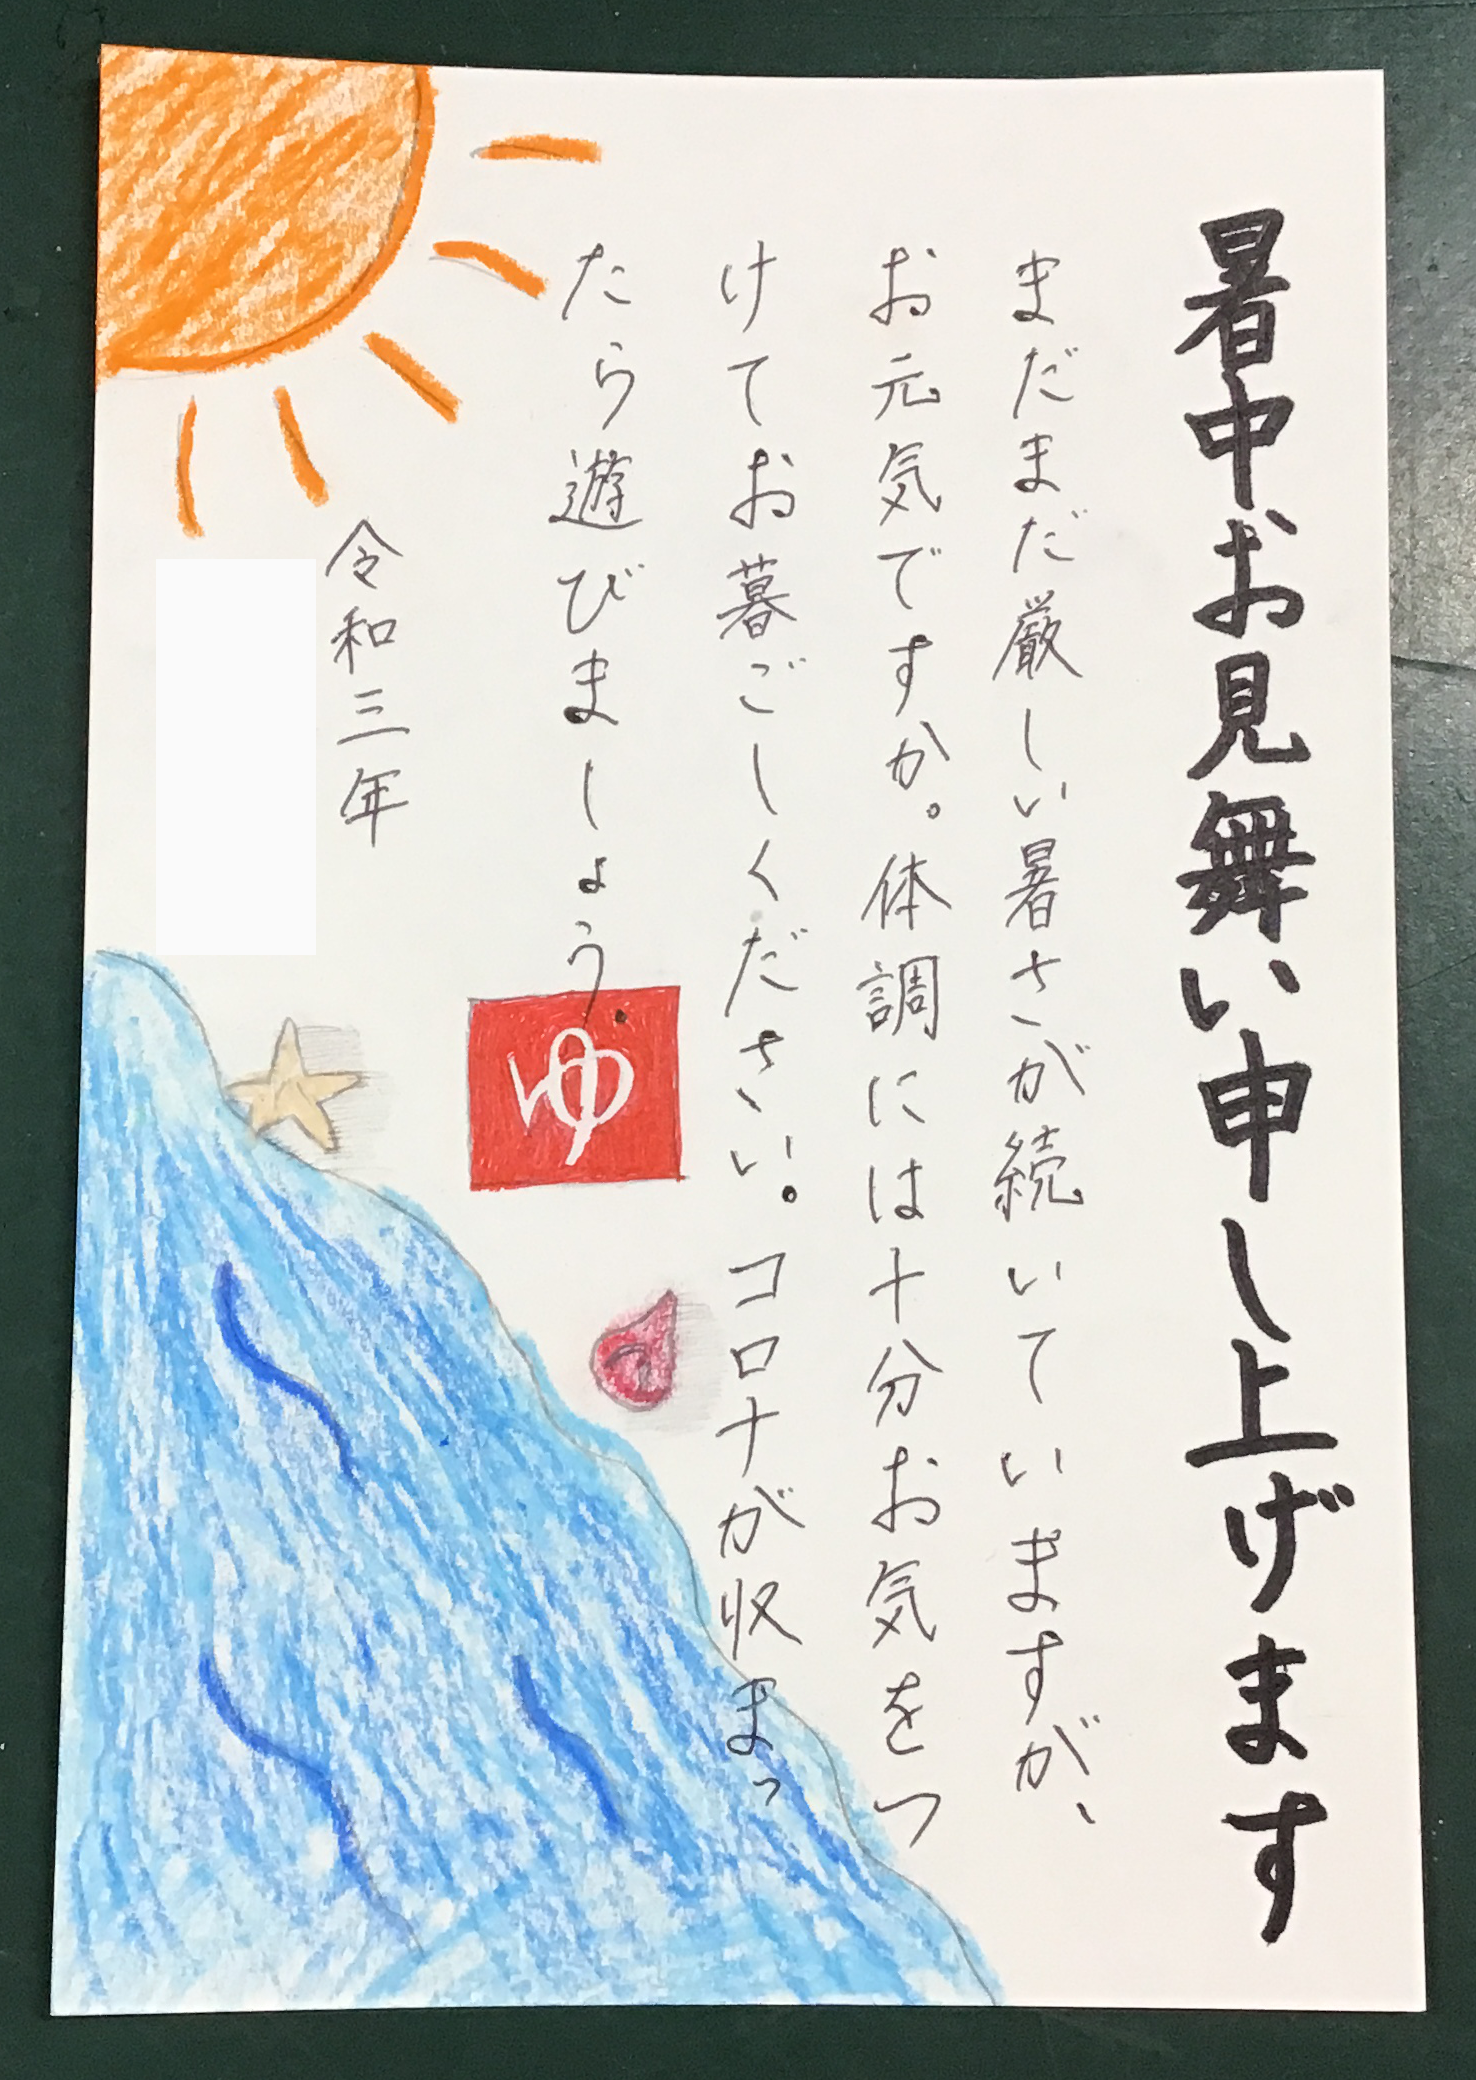 暑中お見舞い申し上げます
まだまだ厳しい暑さが続いていますが、
お元気ですか。体調には十分お気をつ
けてお暮ごしください。コロナが収まっ
たら遊びましょう。
ゆ
令和三年